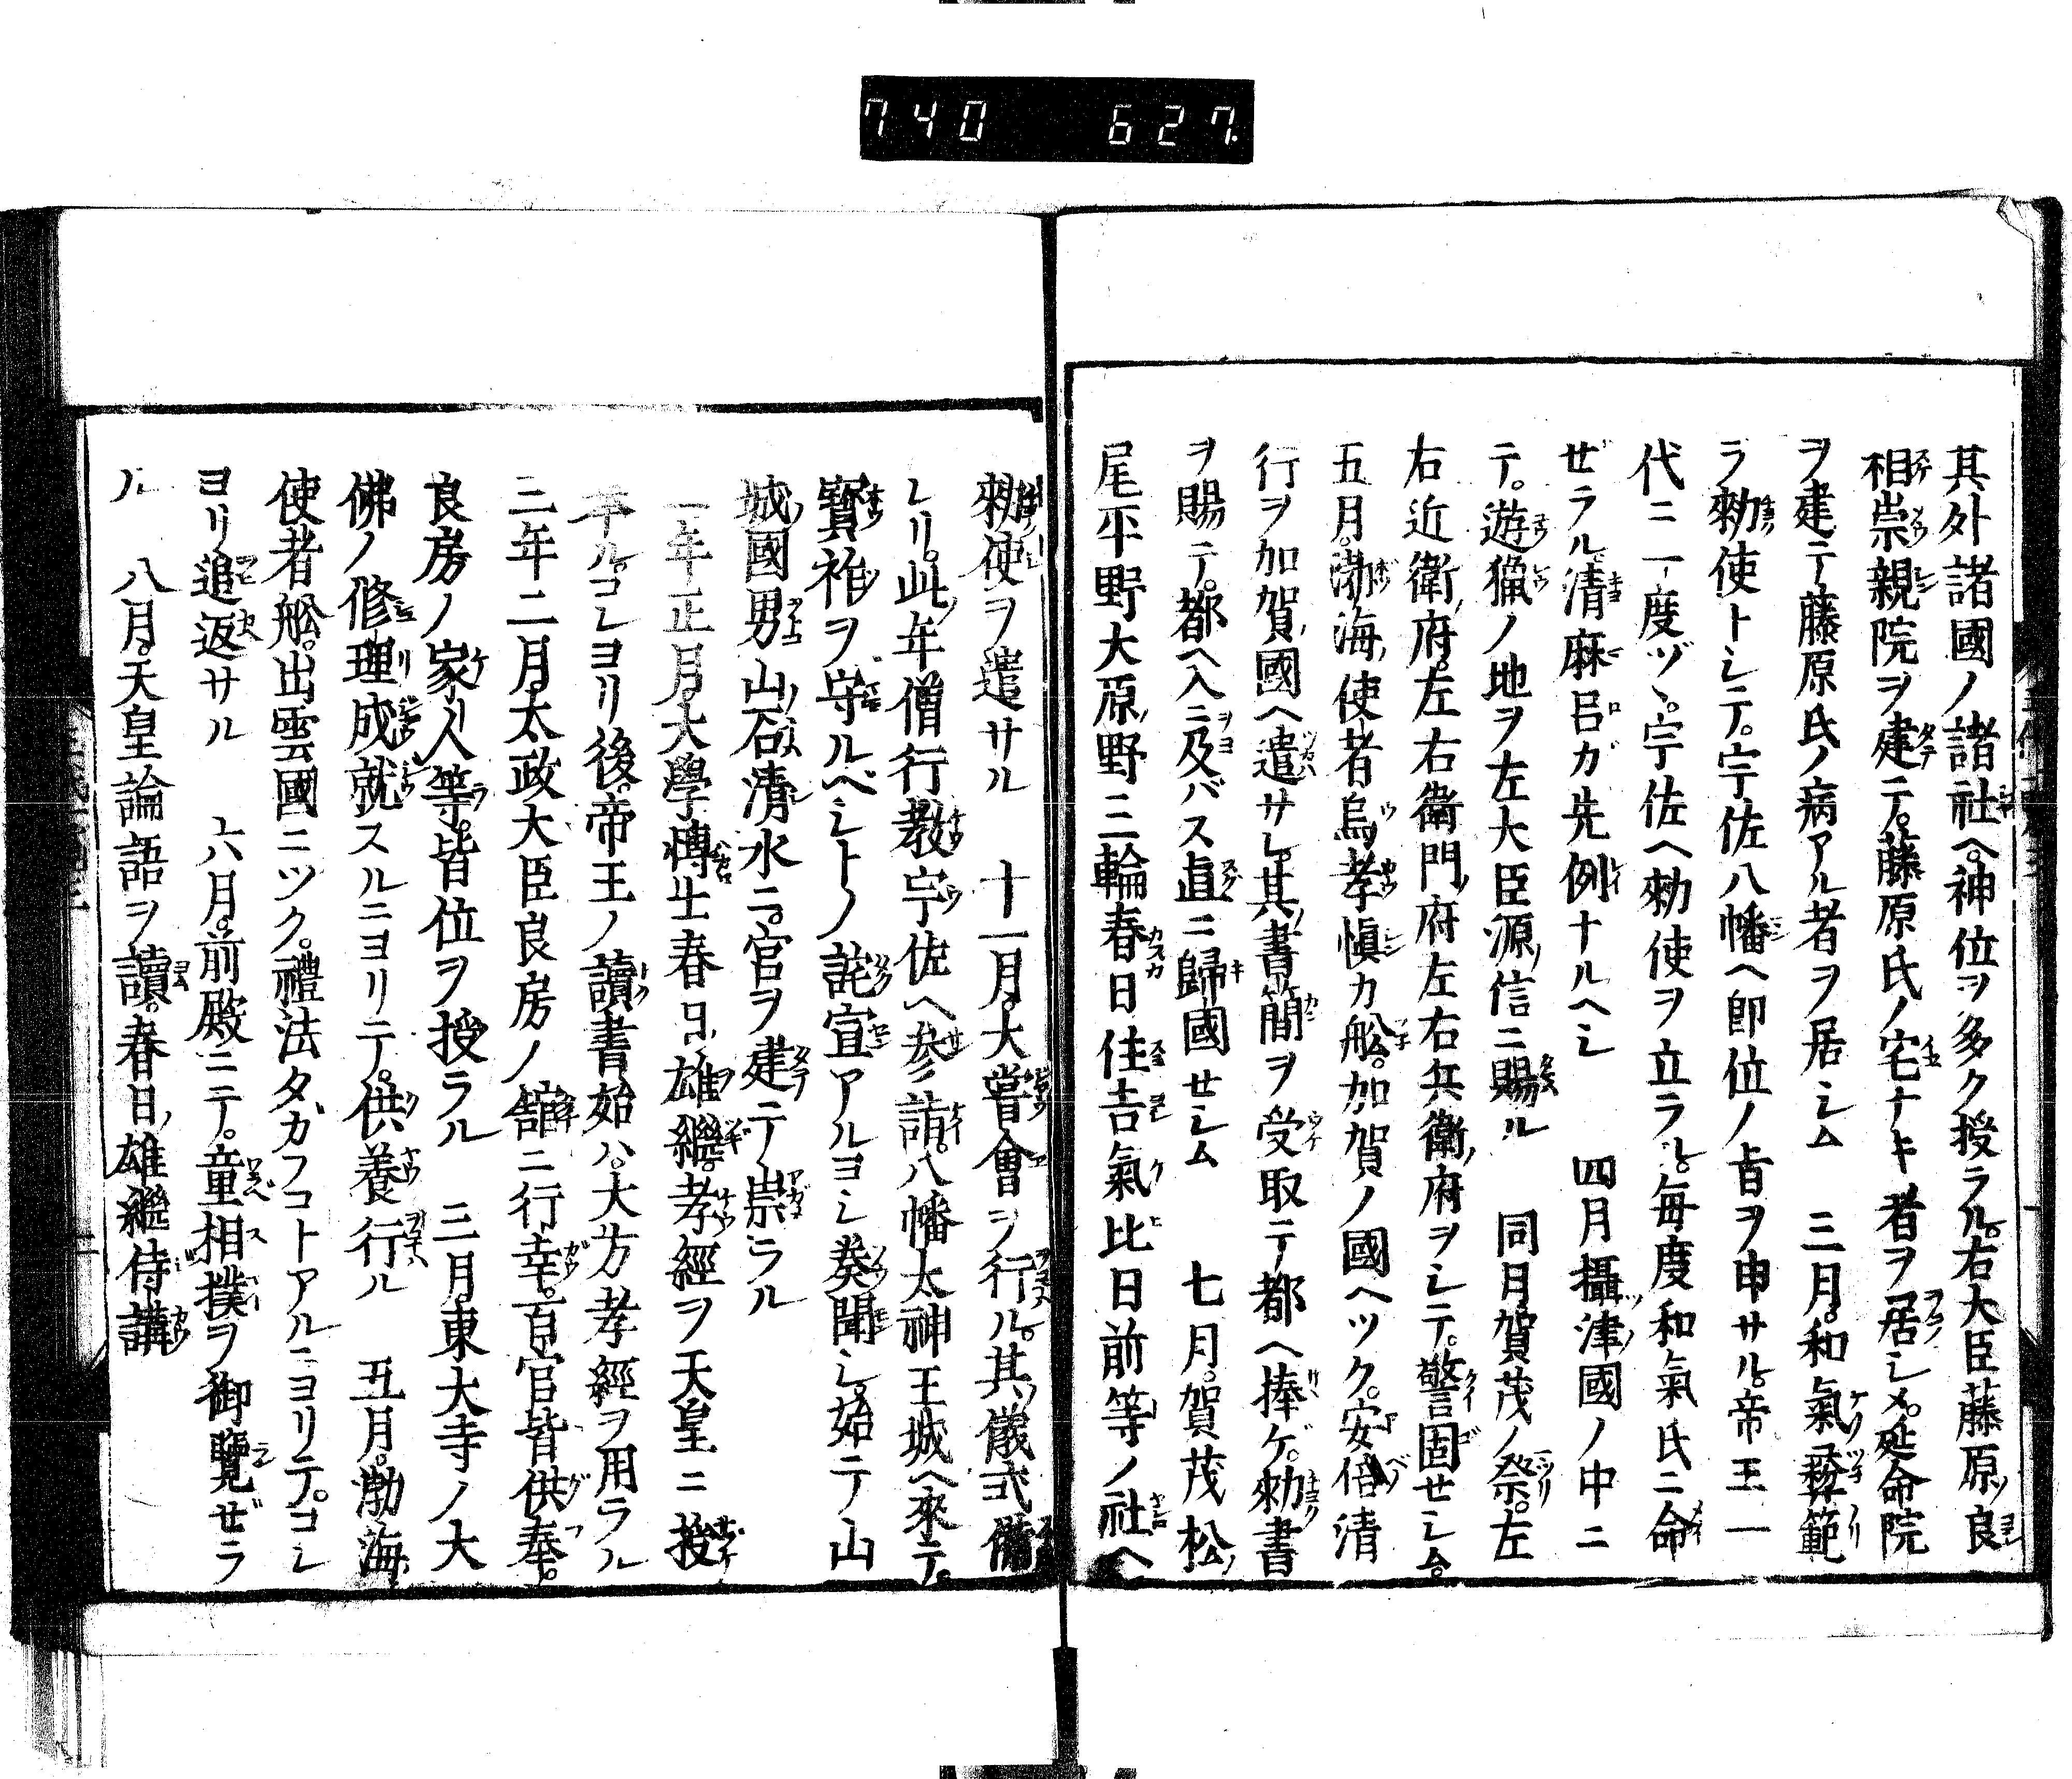 740 627.
其外諸國ノ諸社ヘ神位ヲ多ク授ラル。右大臣藤原ノ良
相崇親院ヲ建テ。藤原氏ノ宅ナキ者ヲ居シメ。延命院
ヲ建テ藤原氏ノ病アル者ヲ居シム 三月。和氣彜範
ヲ勅使トシテ。宇佐八幡ヘ即位ノ旨ヲ申サル。帝王一
代ニ一度ヅヽ。宇佐ヘ勅使ヲ立ラル。毎度和氣氏ニ命
ゼラル。清麻呂ガ先例ナルヘシ 四月攝津國ノ中ニ
テ。遊獵ノ地ヲ左大臣源ノ信ニ賜ル 同月。賀茂ノ祭。左
右近衛府。左右衛門ノ府左右兵衛ノ府ヲシテ。警固セシム。
五月。渤海ノ使者烏孝愼カ船。加賀ノ國ヘツク。安倍清
行ヲ加賀ノ國ヘ遣サレ。其書簡ヲ受取テ都ヘ捧ゲ。勅書
ヲ賜テ。都ヘ入ニ及バス直ニ歸國セシム 七月。賀茂松ノ
尾平野大原ノ野三輪春日住吉氣比日前等ノ社ヘ
勅使ヲ遣サル 十一月。大嘗會ヲ行ル。其ノ儀式備
レリ。此ノ年僧行教宇佐ヘ參詣。八幡太神王城ヘ來テ。
寳祚ヲ守ルベシトノ詫宣アルヨシ奏聞シ。始テ山
城ノ國男山ノ石清水ニ。宮ヲ建テ崇ラル
二年正月。大學博士春日ノ雄繼。孝經ヲ天皇ニ授
奉ル。コレヨリ後。帝王ノ讀書始ハ。大方孝經ヲ用ラル
三年二月。太政大臣良房ノ舘ニ行幸。百官皆供奉。
良房ノ家人等。皆位ヲ授ラル 三月。東大寺ノ大
佛ノ修理成就スルニヨリテ。供養行ル 五月。渤海
使者船。出雲國ニツク。禮法タガフコトアルニヨリテ。コレ
ヨリ追返サル 六月。前殿ニテ。童相撲ヲ御覽ゼラ
ル 八月。天皇論語ヲ讀。春日ノ雄繼侍講